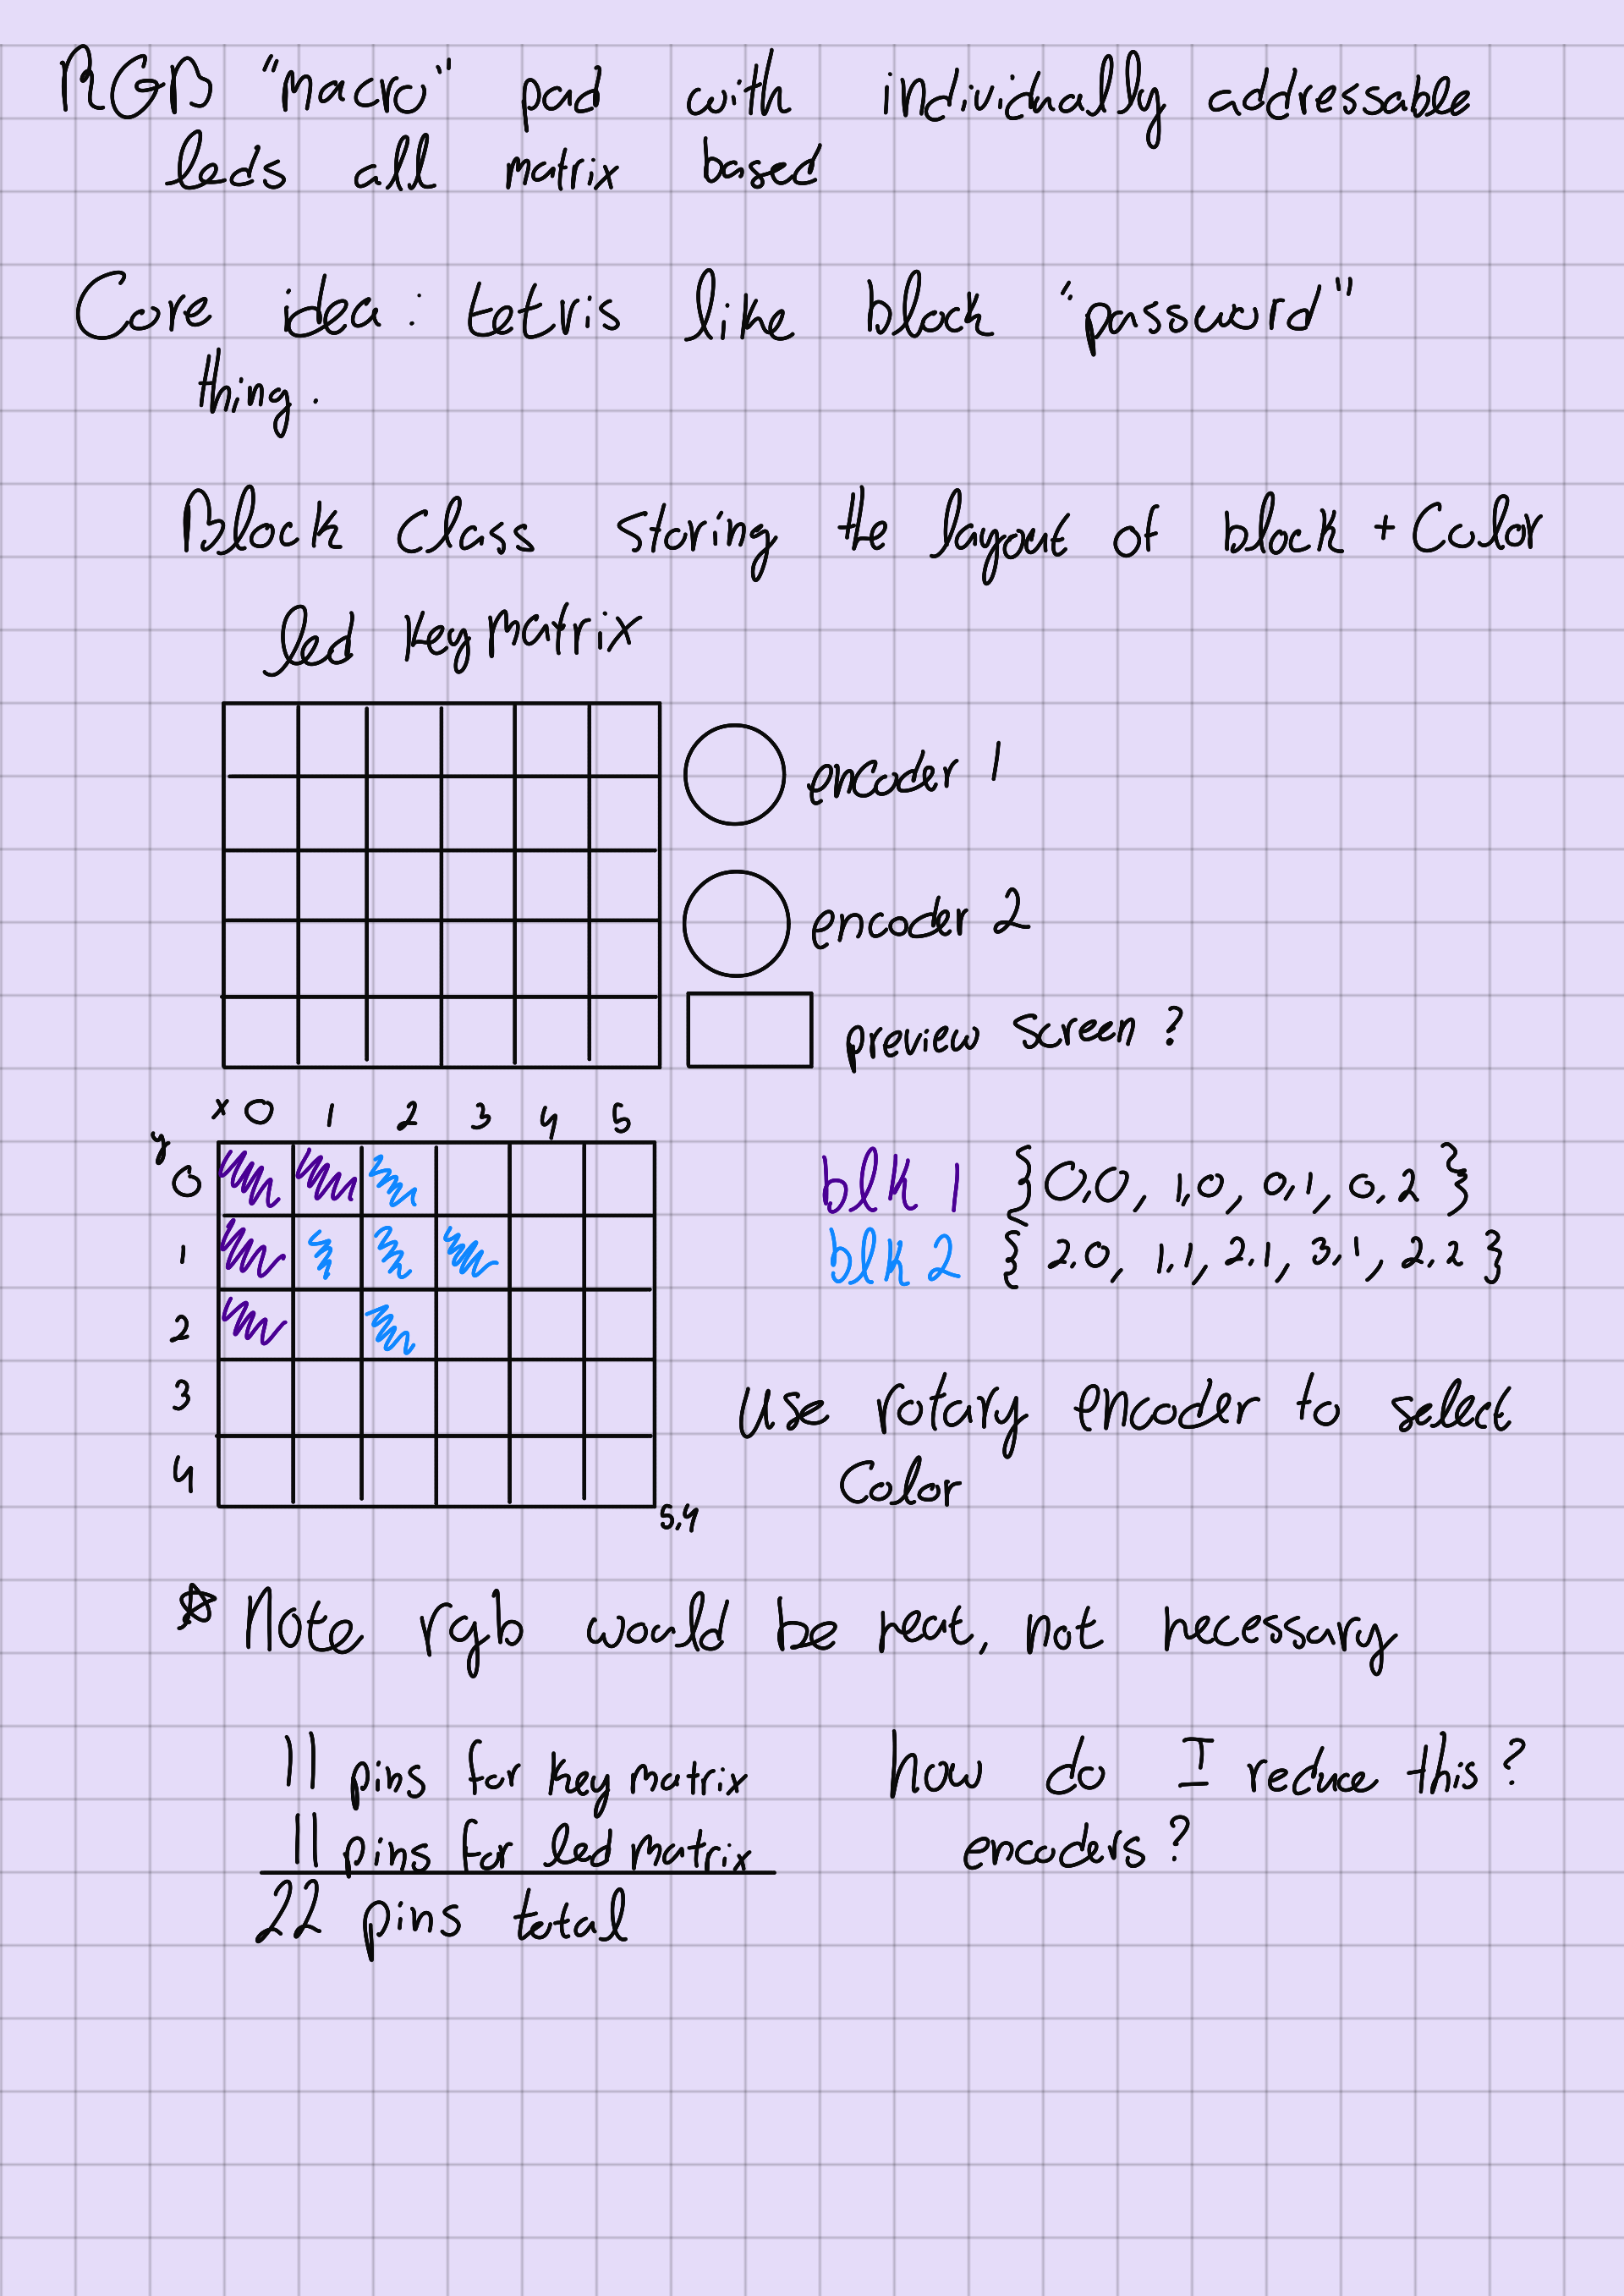 RGB "macro" pad with individually addressable
leds all matrix based
Core idea: tetris like block "password"
thing.
Block Class storing the layout of block + Color
led key matrix
encoder 1
encoder 2
preview screen ?
x 0 1 2 3 4 5
y
0
1
2
3
4
5,4
blk 1 {0,0, 1,0, 0,1, 0,2}
blk 2 {2.0, 1,1, 2,1, 3,1, 2,2}
use rotary encoder to select
Color
☆ Note rgb would be neat, not necessary
11 pins for key matrix
11 pins for led matrix
22 pins total
how do I reduce this?
encoders?